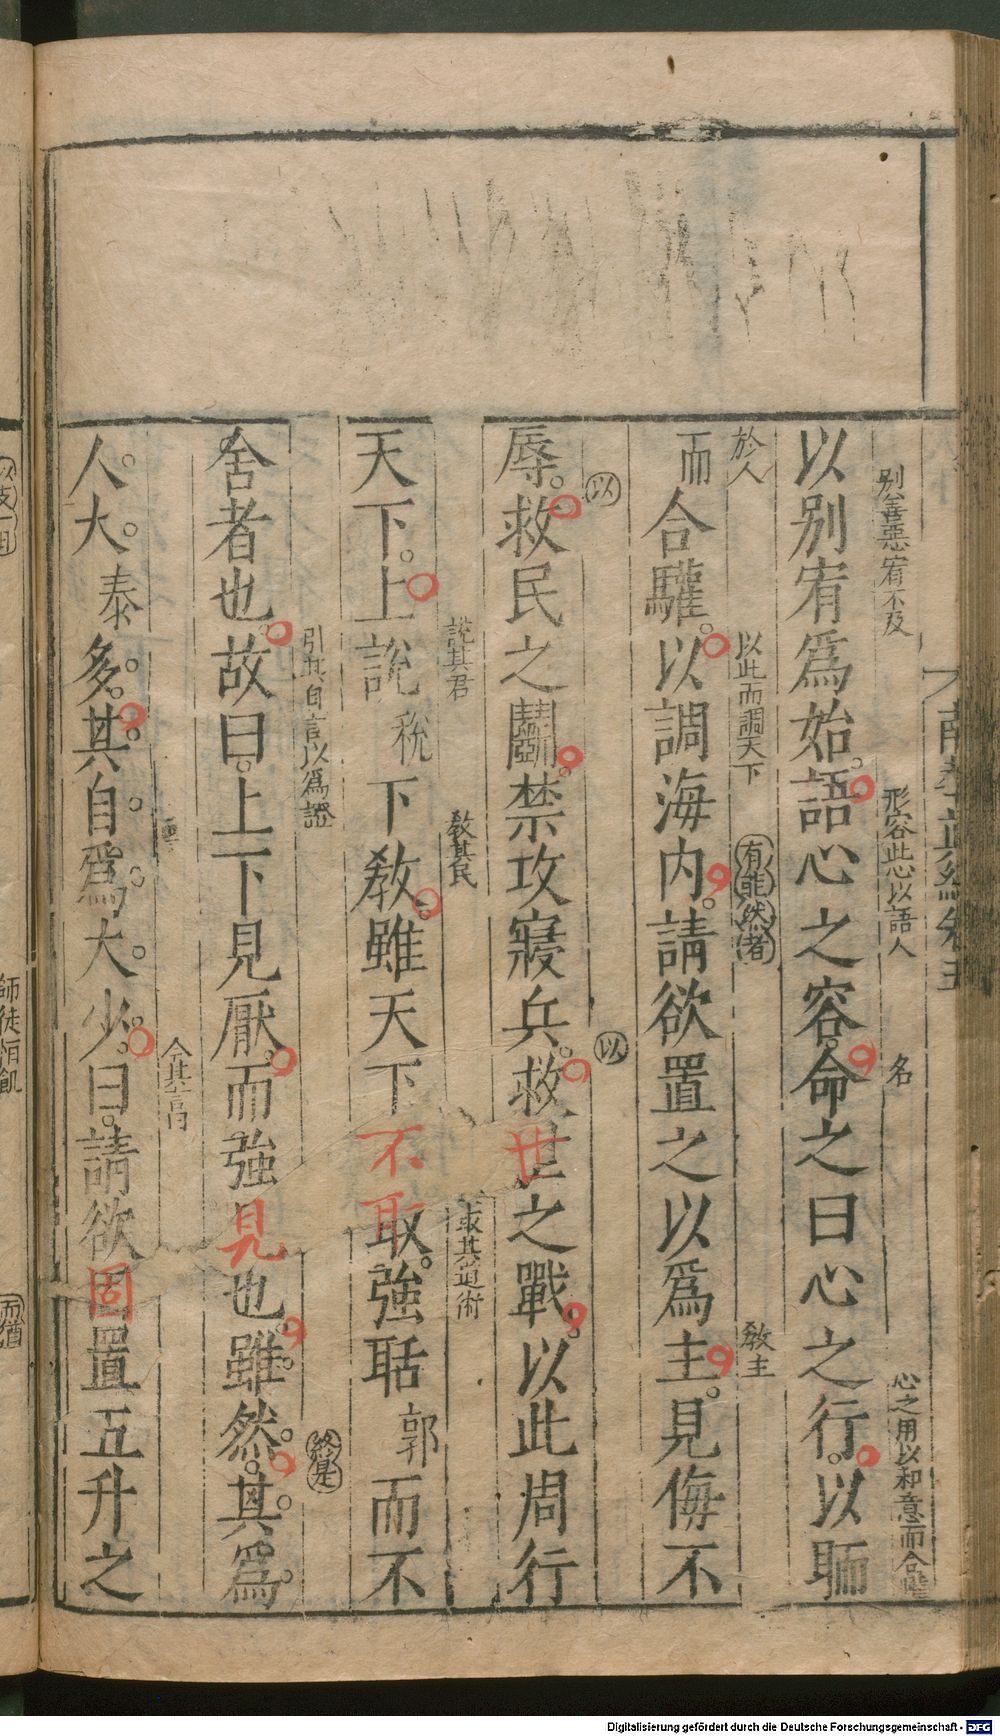 別善惡宥不及　形容此心以語人　名　心之用以和意而合驩
以別宥爲始。語心之容。命之曰心之行。以聏
於人　以此而調天下　有能然者　教主
而合驩。以調海内。請欲置之以爲主。見侮不
以　以
辱。救民之鬭。禁攻寢兵。救世之戰。以此周行
說其君　教其民　取其道術
天下。上說稅下教。雖天下不取。強聒郭而不
引其自言以爲證　終是
舍者也。故曰。上下見厭。而強見也。雖然。其爲
人大。泰多。其自爲大少。曰。請欲固置五升之
師徒恒飢
而猶
Digitalisierung gefördert durch die Deutsche Forschungsgemeinschaft - DFG